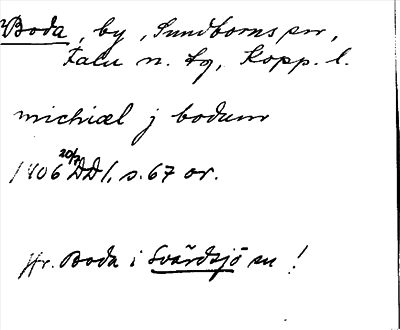 Boda, by, Sundborns sn,
Falu n. tg, Kopp. l.
michiæl j bodum
1406 20/7 DD 1, s. 67 or.
Jfr. Boda i Svärdsjö sn!